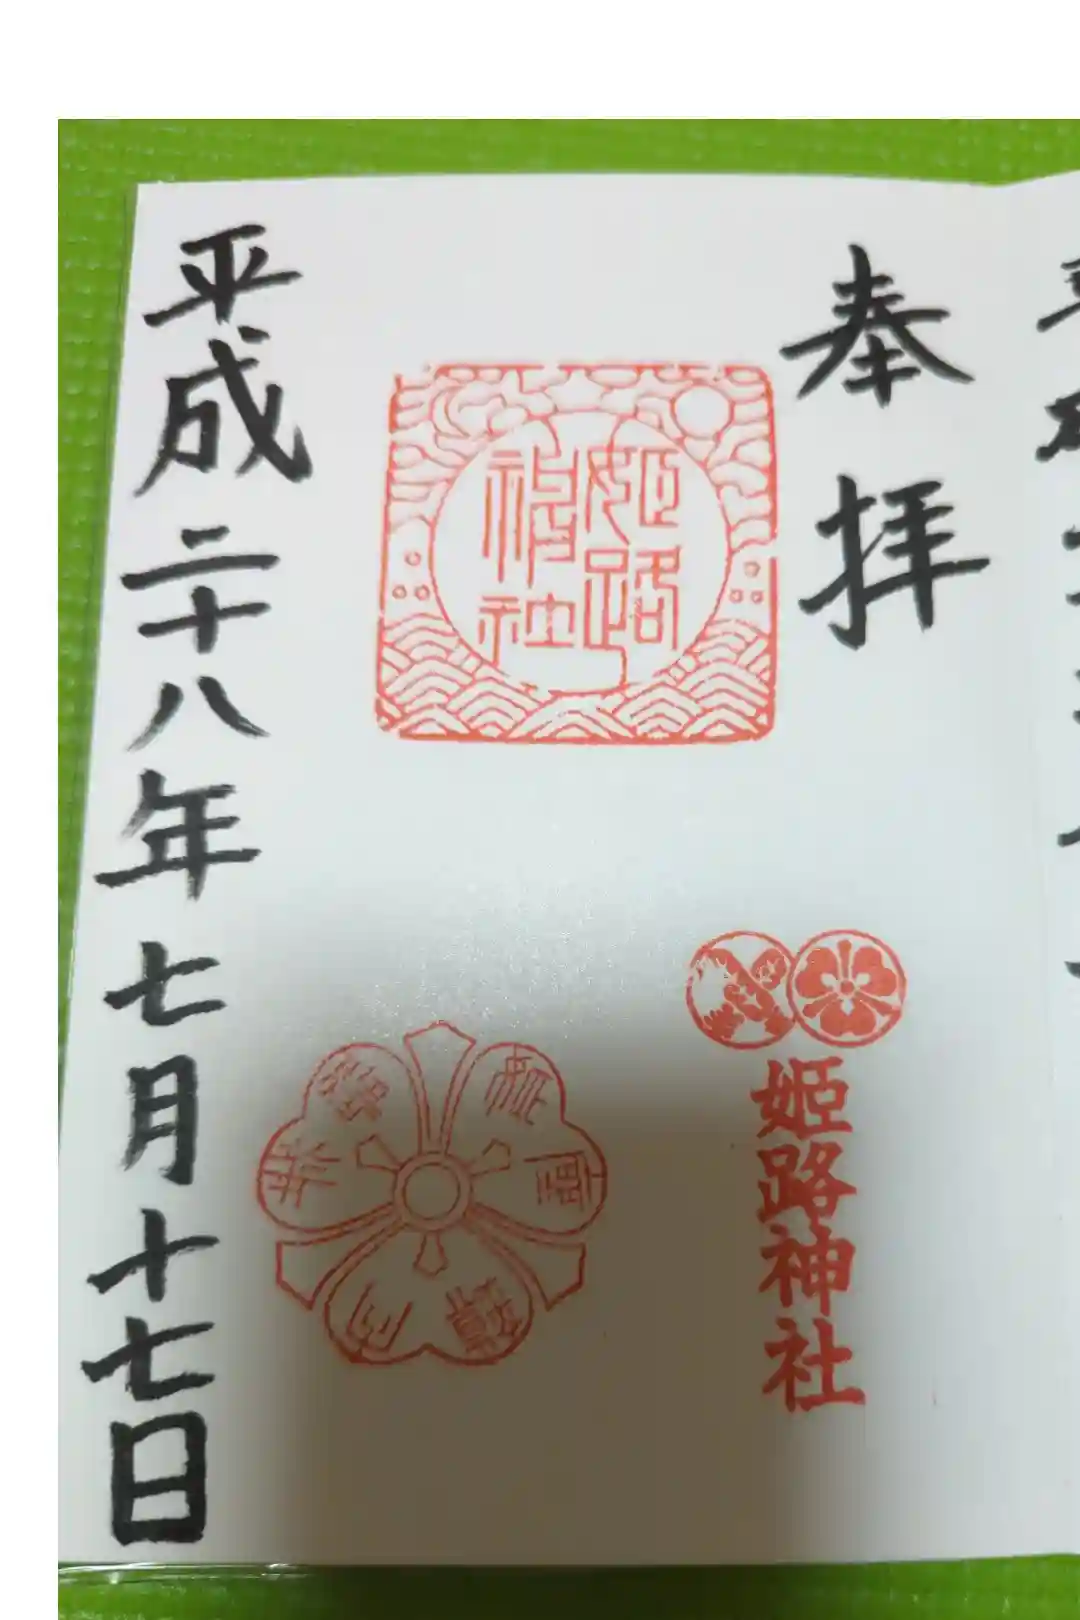 奉拝
姫路
神社
姫路神社
平成二十八年七月十七日